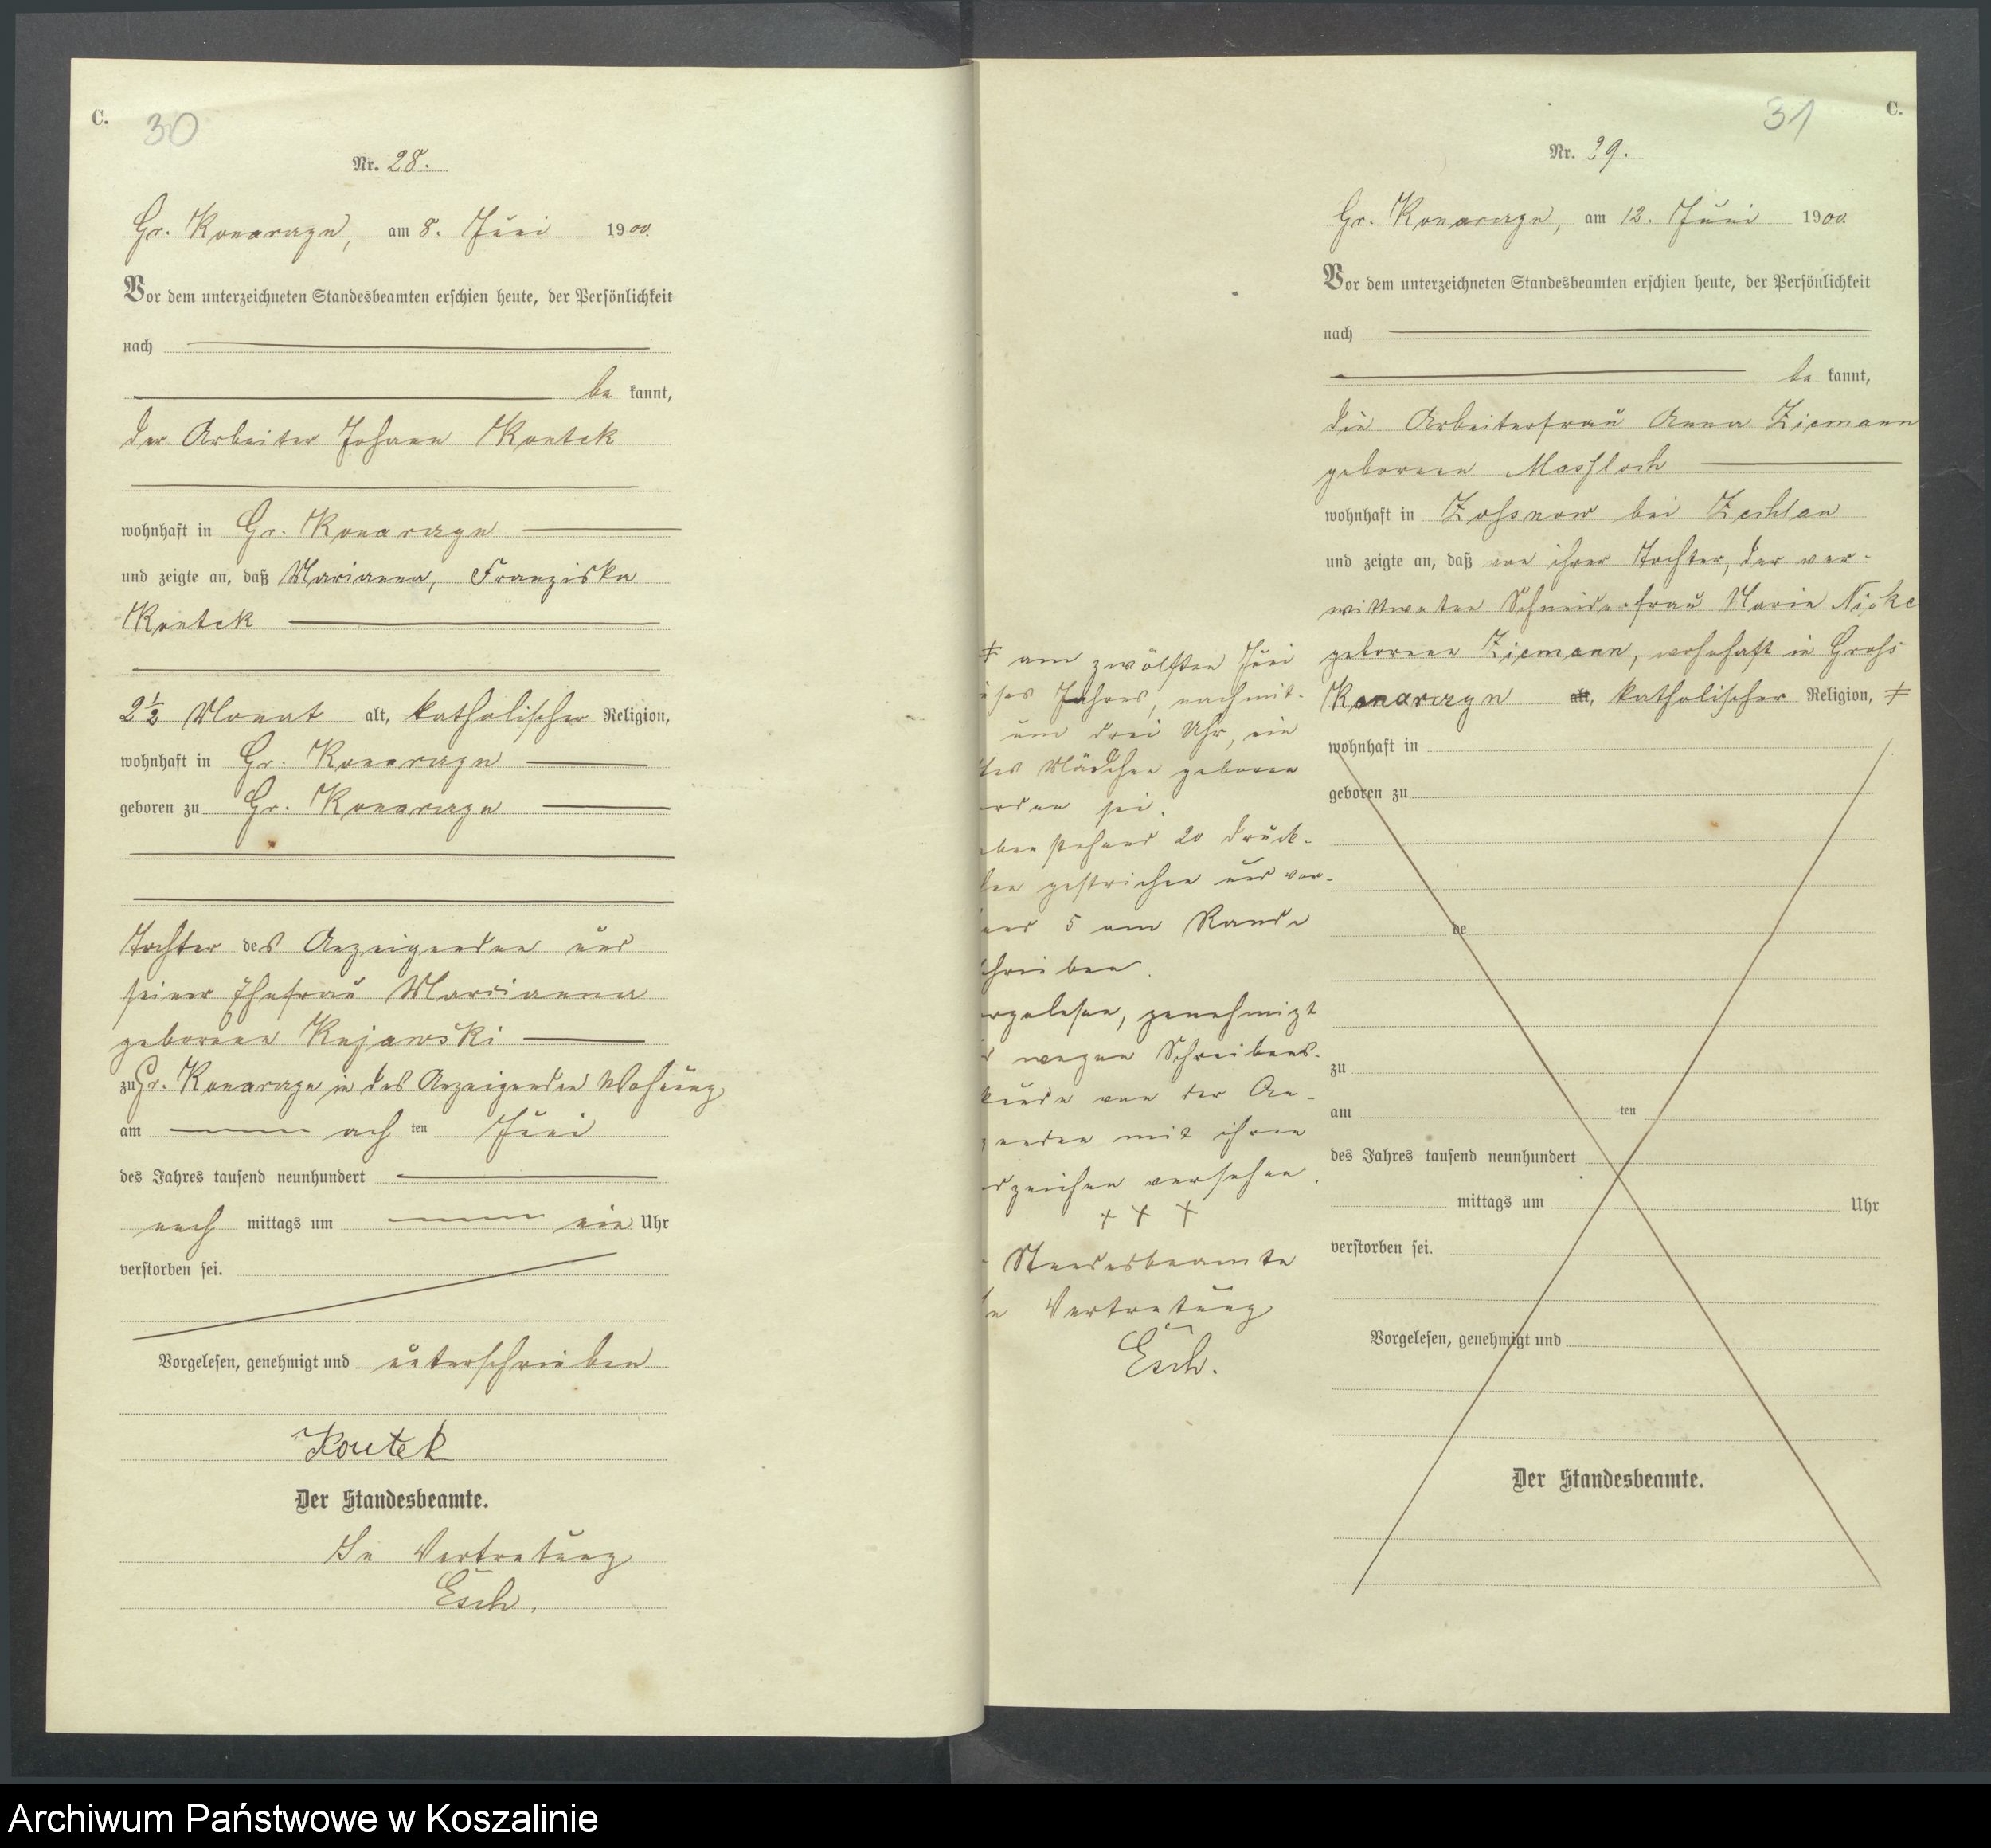 C.
30
Nr. 28.
Gr. Konarczyn, am 8. Juni 1900.
Vor dem unterzeichneten Standesbeamten erschien heute, der Persönlichkeit
nach
be kannt,
der Arbeiter Johann Kontek
wohnhaft in Gr. Konarczyn
und zeigte an, daß Marianna, Franziska
Kontek
2½ Monat alt, katholischer Religion,
wohnhaft in Gr. Konarczyn
geboren zu Gr. Konarczyn
Tochter des Anzeigenden und
seiner Ehefrau Marianna
geborene Kujawski
zu Gr. Konarczyn in des Anzeigenden Wohnung
am ach ten Juni
des Jahres tausend neunhundert
nach mittags um ein Uhr
verstorben sei.
Vorgelesen, genehmigt und unterschrieben
Kontek
Der Standesbeamte.
In Vertretung
Esch.
31
C.
Nr. 29.
Gr. Konarczyn, am 12. Juni 1900.
Vor dem unterzeichneten Standesbeamten erschien heute, der Persönlichkeit
nach
be kannt,
die Arbeiterfrau Anna Ziemann
geborene
wohnhaft in bei Zechlau
und zeigte an, daß von ihrer Tochter, der ver-
wittweten Schneiderfrau Marie
geborene Ziemann, wohnhaft in Groß
Konarczyn alt, katholischer Religion, ≠
wohnhaft in
geboren zu
de
zu
am ten
des Jahres tausend neunhundert
mittags um Uhr
verstorben sei.
Vorgelesen, genehmigt und
Der Standesbeamte.
≠ am zwölften Juni
Jahres, nachmit-
um drei Uhr, ein
Mädchen geboren
sei.
20 Druck-
gestrichen und vor-
5 am Rande
genehmigt
wegen Schreibens-
von der An-
mit ihren
versehen.
+ + +
Standesbeamte
Vertretung
Esch.
Archiwum Państwowe w Koszalinie